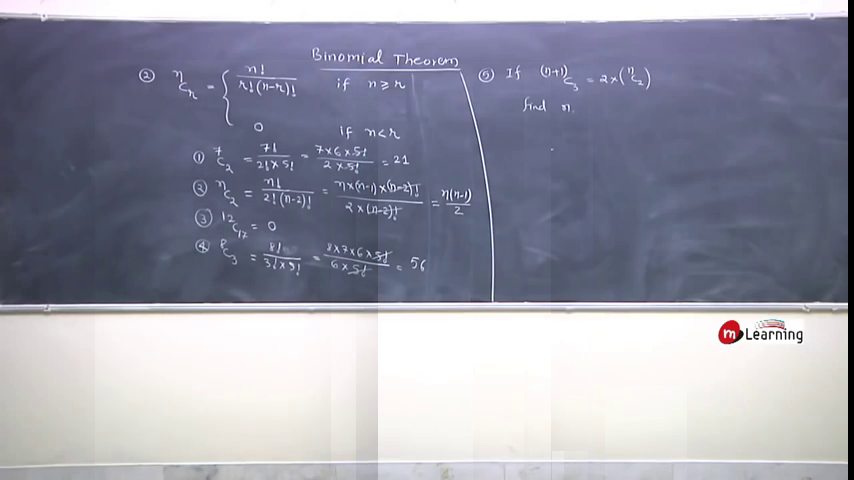 Binomial Theorem
② ⁿCᵣ = { n! / r!(n-r)! if n ≥ r
0 if n < r
① ⁷C₂ = 7! / 2! × 5! = 7×6×5! / 2×5! = 21
② ⁿC₂ = n! / 2!(n-2)! = n×(n-1)×(n-2)! / 2×(n-2)! = n(n-1) / 2
③ ¹²C₁₇ = 0
④ ⁸C₃ = 8! / 3!×5! = 8×7×6×5! / 6×5! = 56
⑤ If ⁽ⁿ⁺¹⁾C₃ = 2×(ⁿC₂)
find n.
m Learning